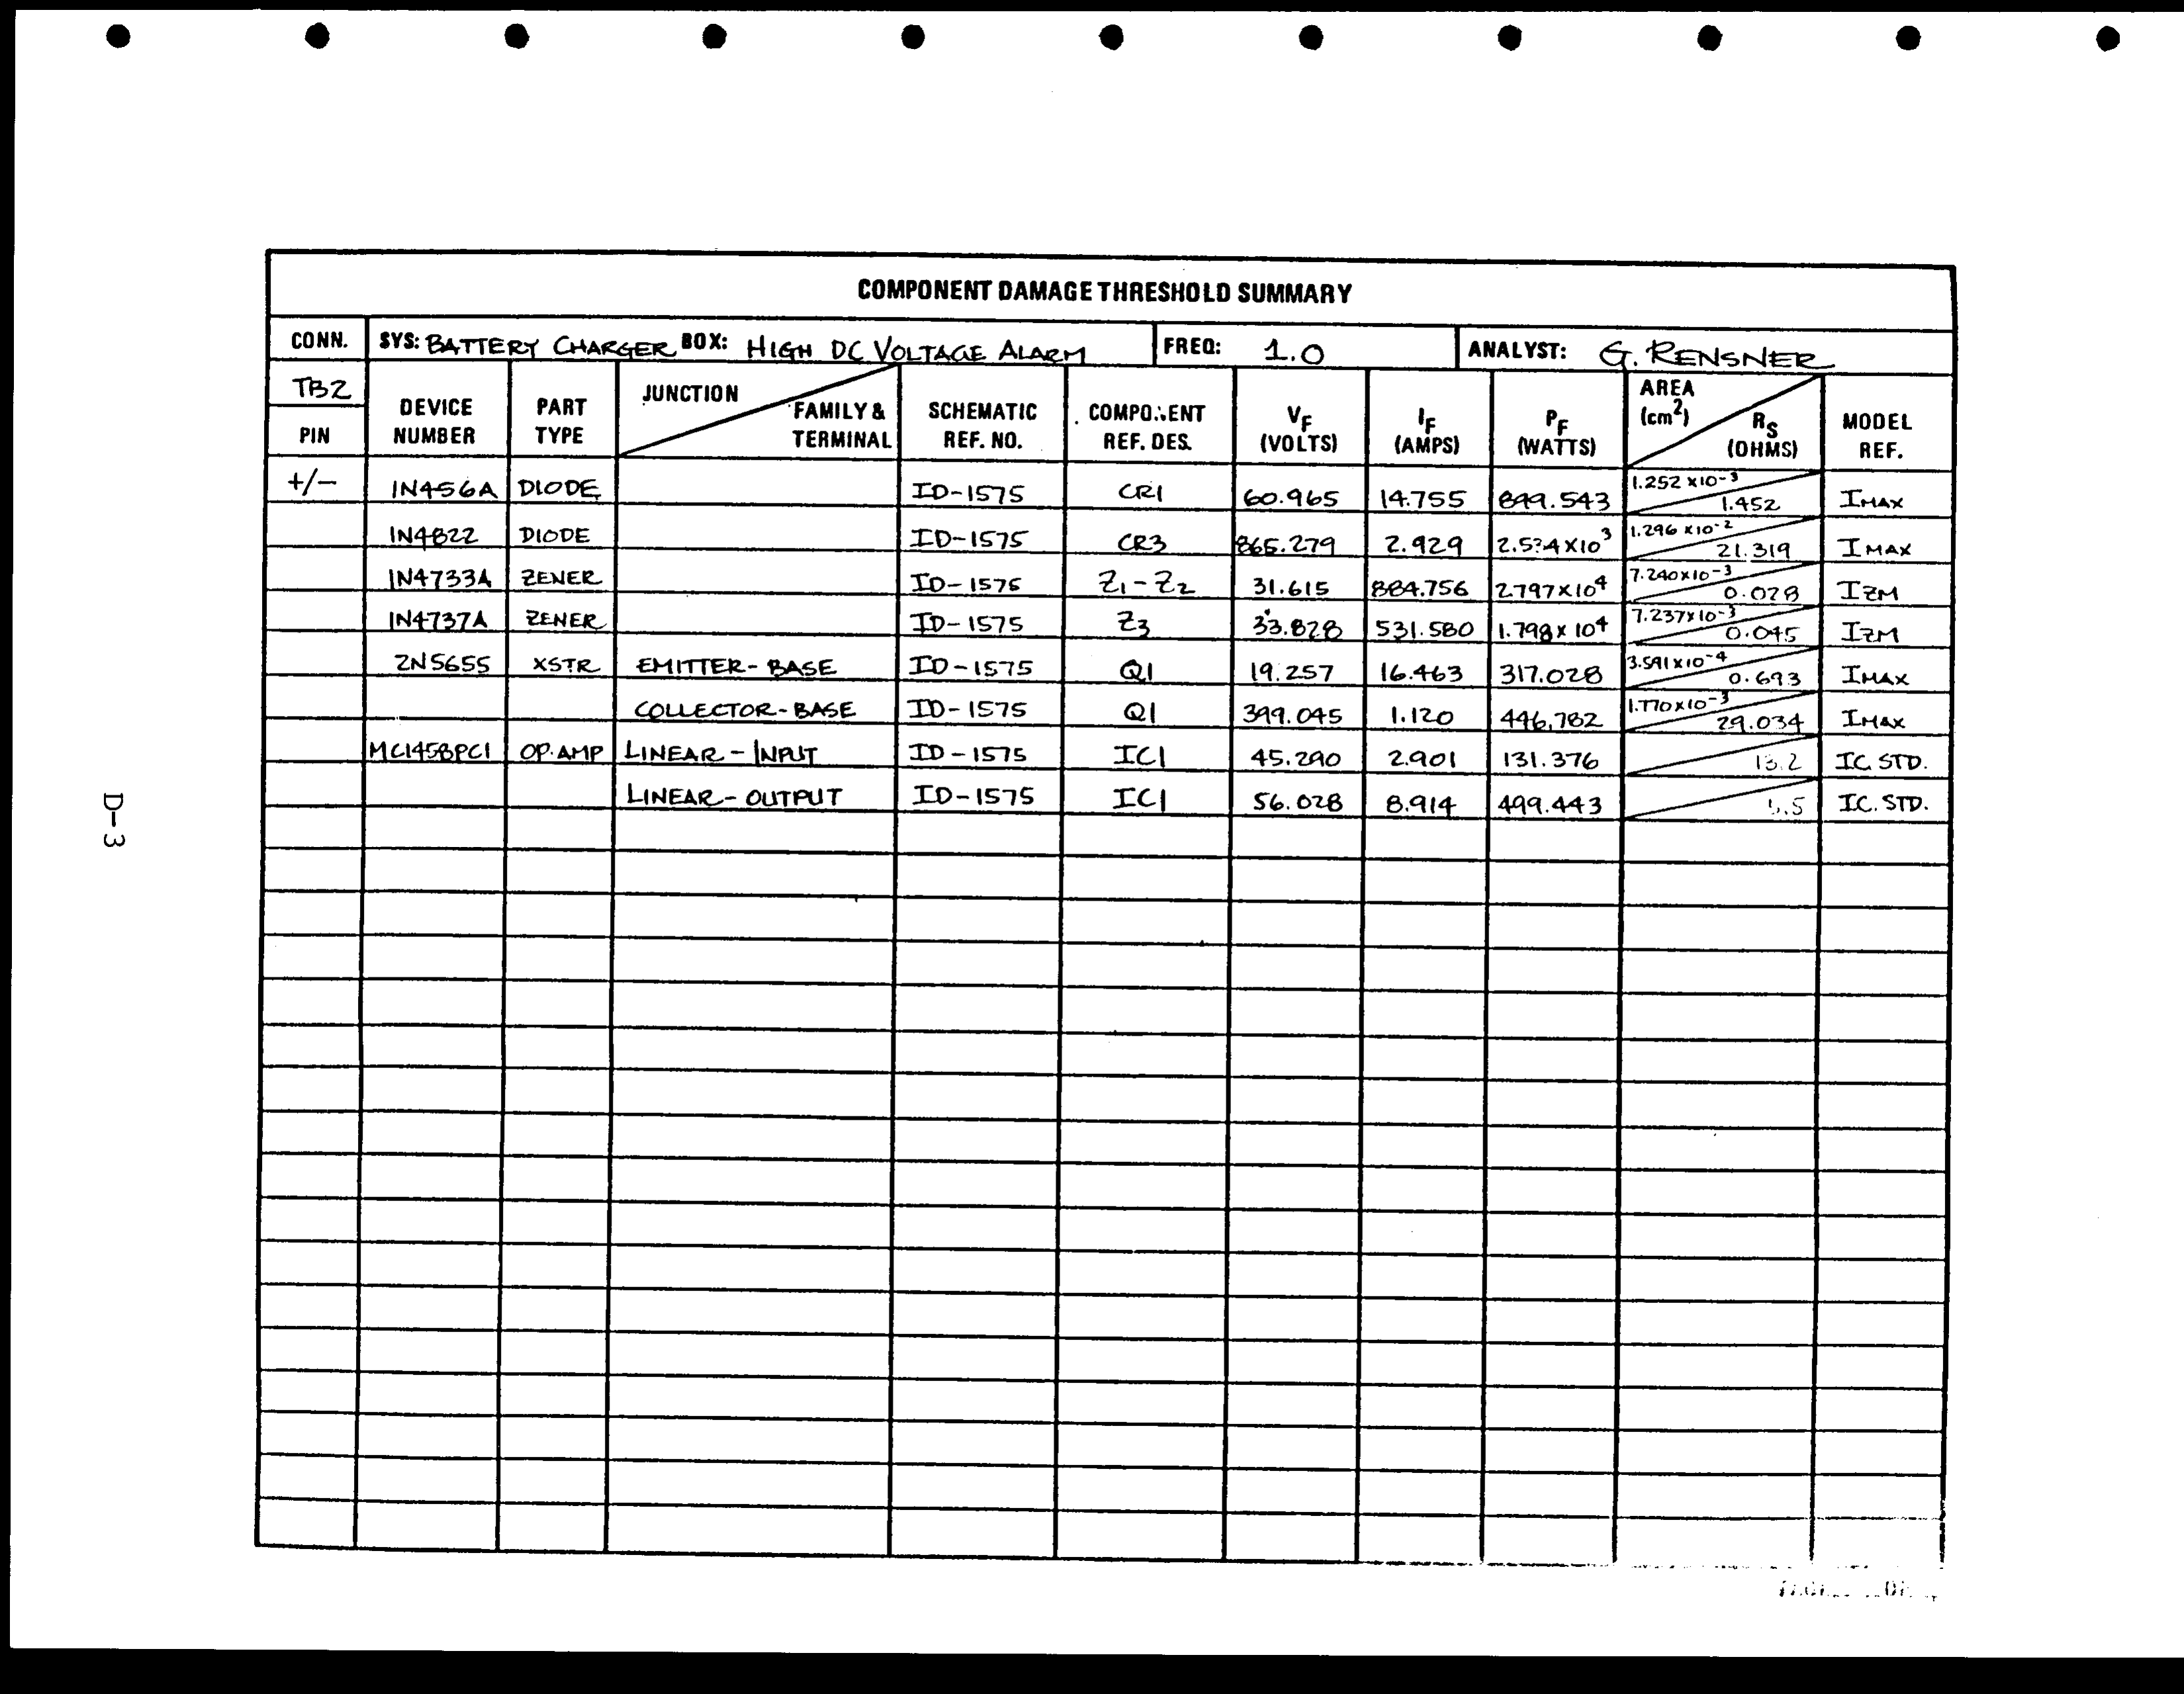 COMPONENT DAMAGE THRESHOLD SUMMARY
CONN. SYS: BATTERY CHARGER BOX: HIGH DC VOLTAGE ALARM FREQ: 1.0 ANALYST: G. RENSNER
TB2 PIN DEVICE NUMBER PART TYPE JUNCTION FAMILY & TERMINAL SCHEMATIC REF. NO. COMPONENT REF. DES. VF (VOLTS) IF (AMPS) PF (WATTS) AREA (cm2) RS (OHMS) MODEL REF.
+/- 1N456A DIODE ID-1575 CR1 60.965 14.755 899.543 1.252 x10-3 1.452 IMAX
1N4822 DIODE ID-1575 CR3 865.279 2.929 1.296 x10-2 21.319 IMAX
1N4733A ZENER ID-1575 Z1-Z2 31.615 884.756 2.797x104 7.240x10-3 0.028 IZM
1N4737A ZENER ID-1575 Z3 33.828 531.580 1.798x104 7.237x10-3 0.045 IZM
2N5655 XSTR EMITTER-BASE ID-1575 Q1 19.257 16.463 317.028 3.591x10-4 0.693 IMAX
COLLECTOR-BASE ID-1575 Q1 399.045 1.120 446.782 1.770x10-3 29.034 IMAX
MC1458PC1 OP.AMP LINEAR-INPUT ID-1575 IC1 45.290 2.901 131.376 13.2 IC.STD.
LINEAR-OUTPUT ID-1575 IC1 56.028 8.914 499.443 I.C.STD.
D-3